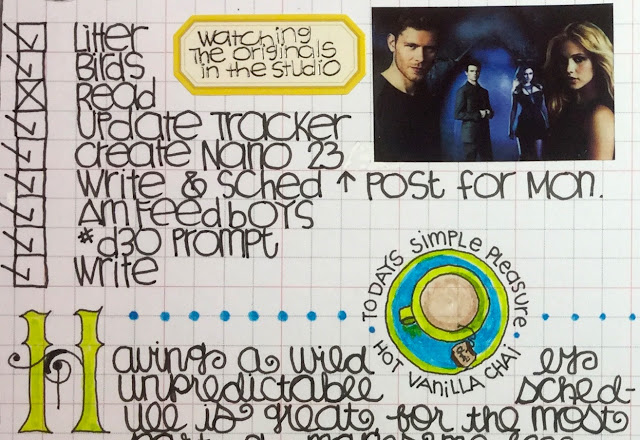 watching
The originals
in the studio
Litter
Birds
Read
Update Tracker
create Nano 23
write & sched ↑ Post for Mon.
AM Feed boys
#d30 Prompt
write
TODAYS Simple Pleasure
HOT Vanilla CHAI
Having a wild
unpredictable sched-
ule is great for the most